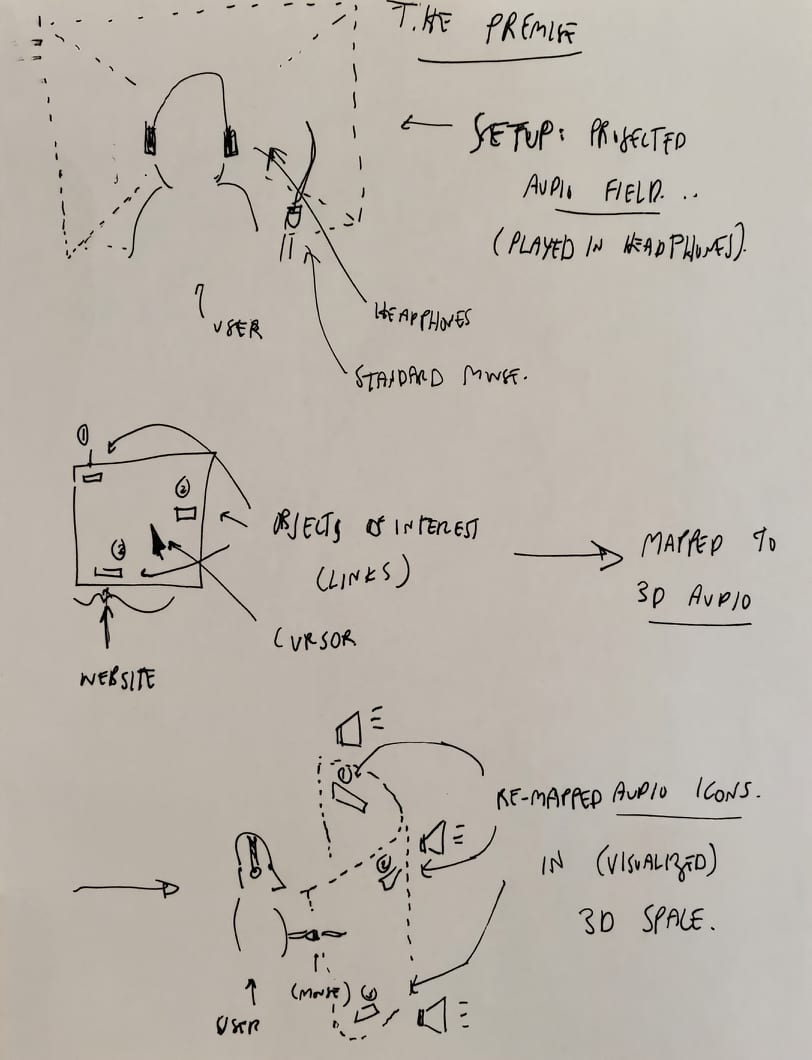 THE PREMISE
SETUP: PROJECTED
AUDIO FIELD...
(PLAYED IN HEADPHONES).
USER
HEADPHONES
STANDARD MOUSE.
1
2
3
OBJECTS OF INTEREST
(LINKS)
CURSOR
WEBSITE
MAPPED TO
3D AUDIO
1
RE-MAPPED AUDIO ICONS.
2
IN (VISUALIZED)
3D SPACE.
(MOUSE)
3
USER